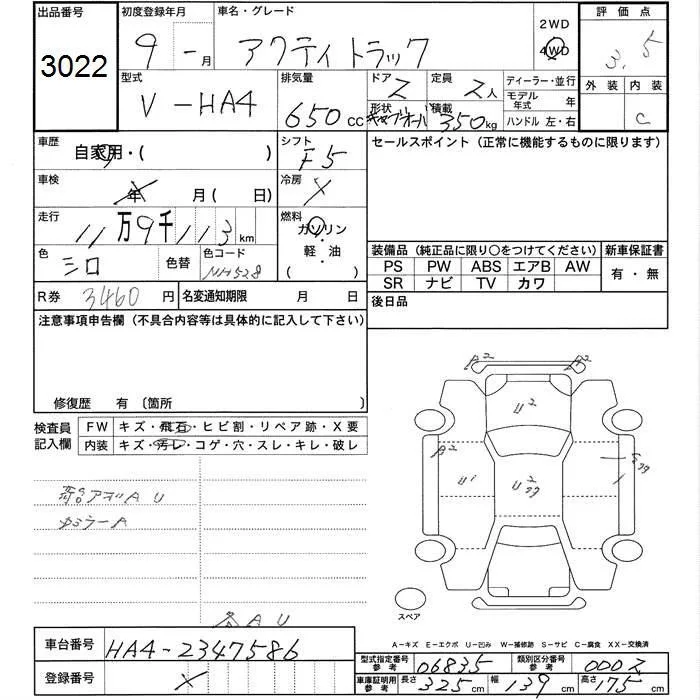 出品番号 3022
初度登録年月 9 - 月
車名・グレード アクティトラック
2WD
4WD
評価点 3.5
型式 V-HA4
排気量 650cc
ドア 2
形状
定員 2人
積載 350kg
ディーラー・並行
モデル年式 年
ハンドル 左・右
外装
内装 C
車歴 自家用・( )
シフト F5
セールスポイント(正常に機能するものに限ります)
車検 年 月(日)
冷房 X
走行 11万9千113km
燃料 ガソリン・軽・油 ( )
色 シロ
色替
色コード NH528
装備品(純正品に限り○をつけてください)
新車保証書
PS PW ABS エアB AW
有・無
SR ナビ TV カワ
R券 3460円
名変通知期限 月 日
後日品
注意事項申告欄(不具合内容等は具体的に記入して下さい)
修復歴 有〔箇所 〕
検査員記入欄
FW キズ・飛石・ヒビ割・リペア跡・X要
内装 キズ・汚レ・コゲ・穴・スレ・キレ・破レ
A2 A2
U2
A2
U1
U2
スペア
各AU
A-キズ E-エクボ U-凹み W-補修跡 S-サビ C-腐食 XX-交換済
車台番号 HA4-2347586
型式指定番号参考 06835
類別区分番号参考 0002
登録番号 X
車庫証明用参考 長さ325cm 幅139cm 高さ175cm